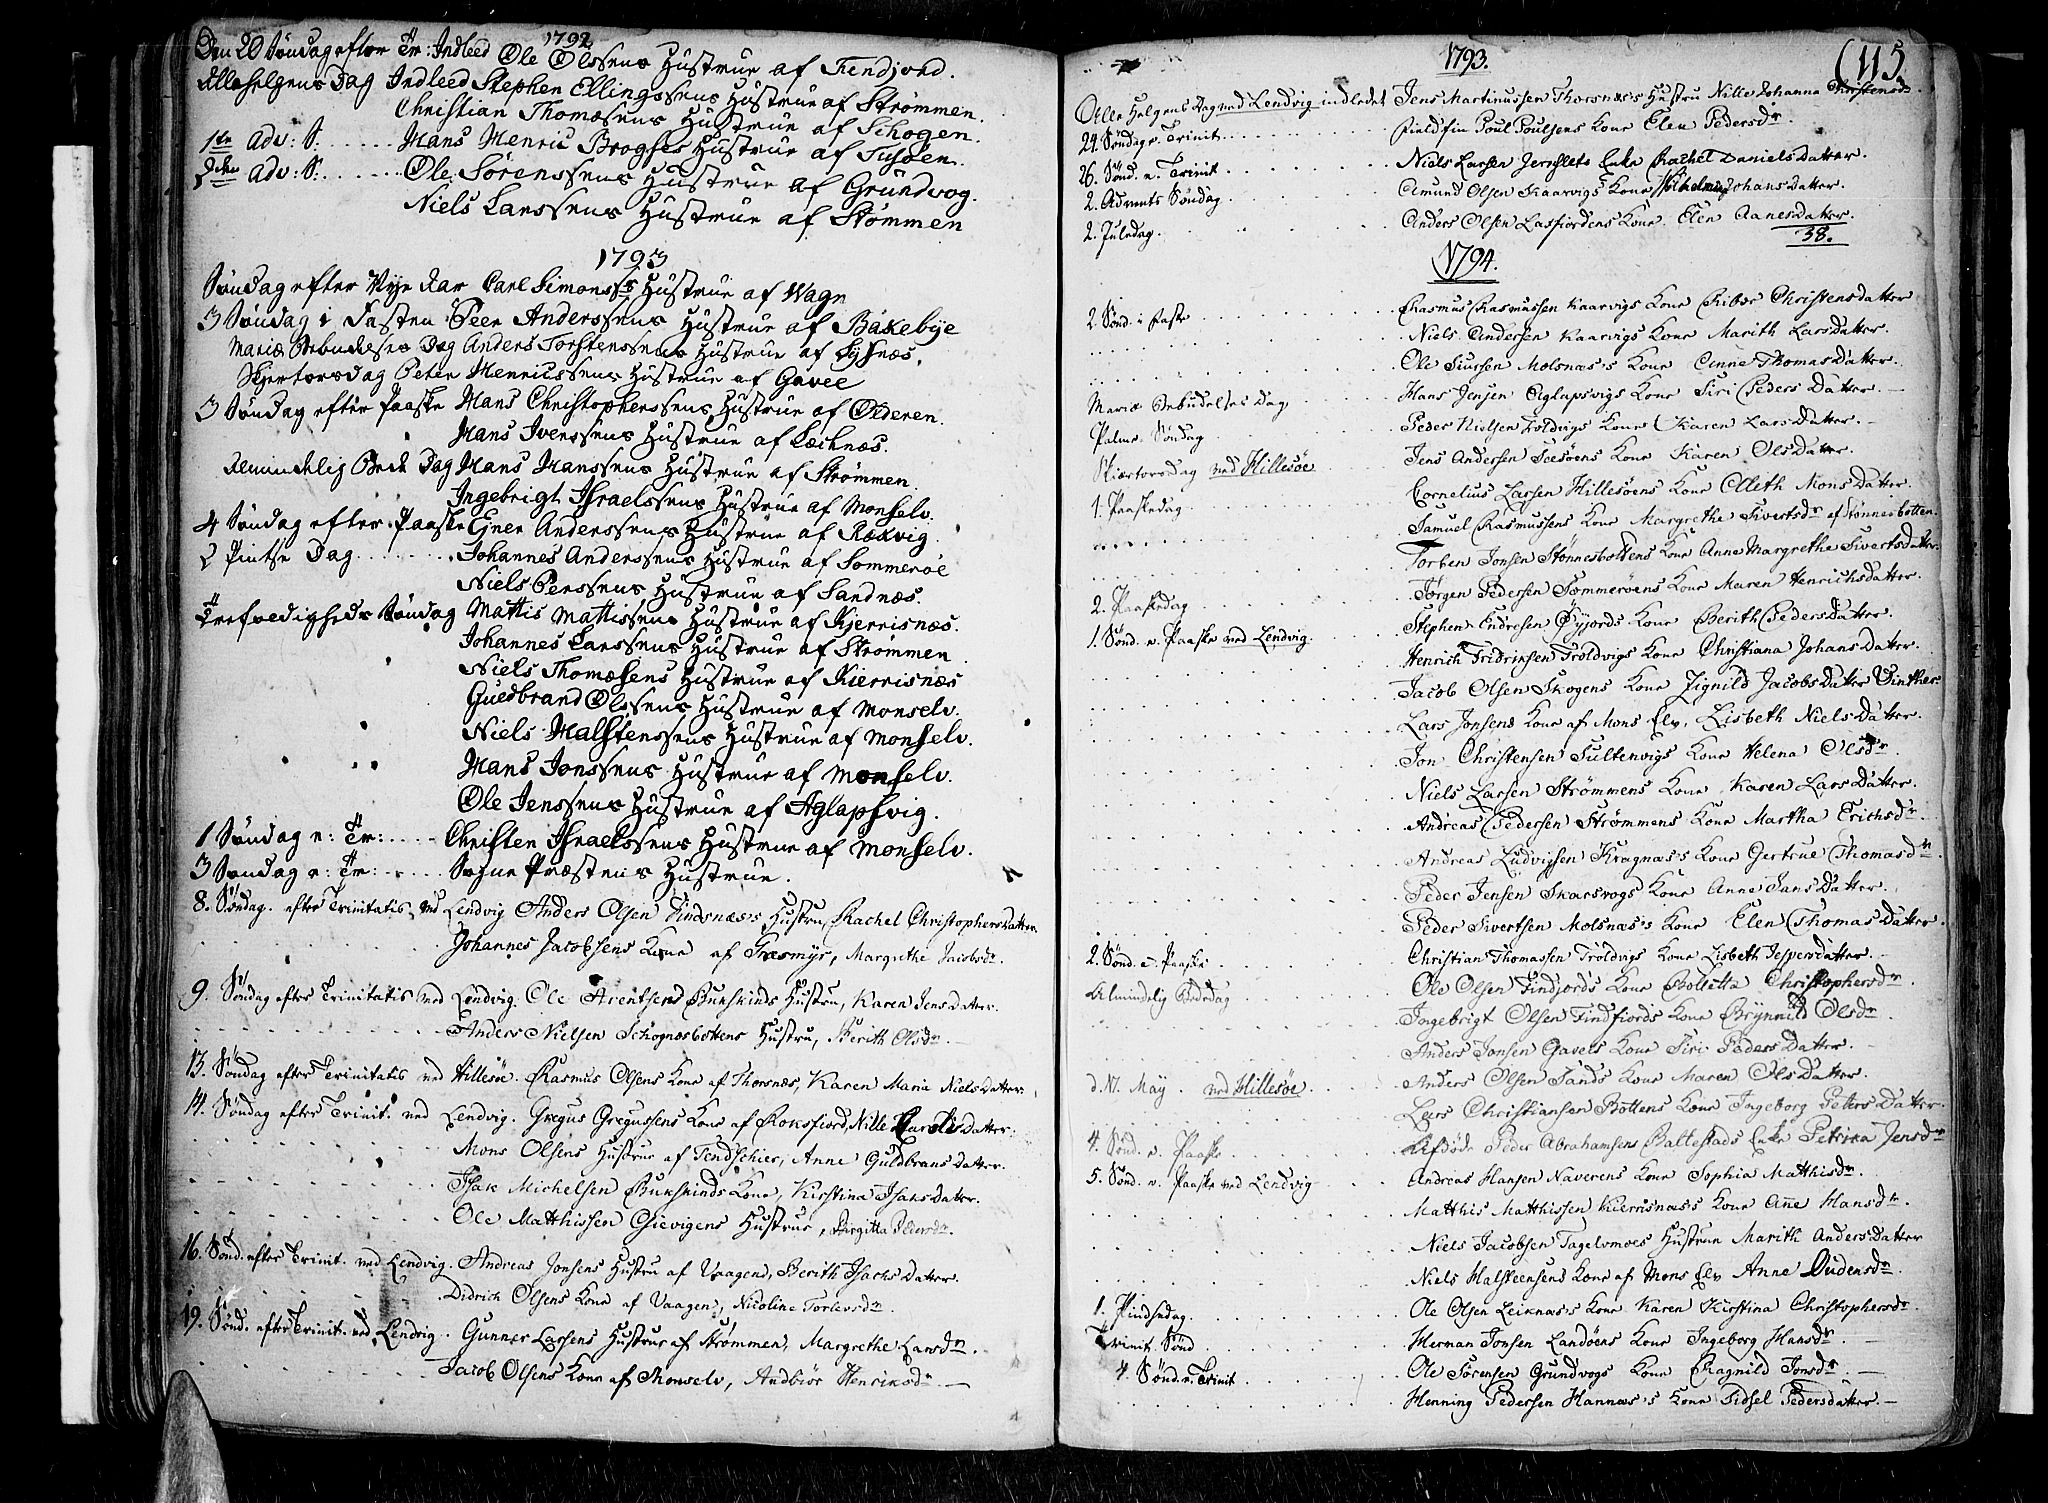 1792
Den 20 Søndag efter Tr: Indleed Ole Olssens Hustrue af Fendjord.
Allehelgens Dag Indleed Stephen Ellingssens Hustrue af Strømmen.
Christian Thomæsens Hustrue af Schogen.
1te Adv: S. Hans Henric Hustrue af Tusøen.
Adv: S: Ole Sørenssens Hustrue af Grundvog.
Niels Larssens Hustrue af Stømmen
1793
Søndag efter Nye Aar Carl Simonss Hustrue af Wagn
3 Søndag i Fasten Peer Anderssens Hustrue af Bakebye
Mariæ Bebudelses Dag Anders Torstenssens Hustrue af Lysnæs.
Skjertorsdag Peter Henricssens Hustrue af Gavel
3 Søndag efter Paaske Hans Christophersens Hustrue af Olderen.
Hans Iverssens Hustrue af Læchnæs.
Almindelig Bede Dag Hans Hanssens Hustrue af Strømmen.
Ingebrigt Israelssens Hustrue af Monselv.
4 Søndag efter Paaske Ener Anderssens Hustrue af Røxvig
2 Pintse Dag Johannes Anderssens Hustrue af Sommerøe
Niels Perssens Hustrue af Sandnæs.
Trefoldigheds Søndag Mattis Mattissens Hustrue af Kjerrisnæs.
Johannes Larssens Hustrue af Strømmen
Niels Thomæsens Hustrue af Kierrisnæs
Guldbrand Olssens Hustrue af Monselv.
Niels Halstenssens Hustrue af Monselv.
Hans Jonssens Hustrue af Monselv.
Ole Jenssens Hustrue af Aglapsvig.
1 Søndag e: Tr: Christen Israelssens Hustrue af Monselv.
3 Søndag e: Tr: Sogne Præstens Hustrue.
8. Søndag efter Trinitatis ved Lendvig Anders Olsen Findsnæs's Hustru, Rachel Christophers Datter
Johannes Jacobsens Kone af Græsmyr, Margrethe Jacobsdr.
9. Søndag efter Trinitatis ved Lendvig. Ole Arentsens Bukskinds Hustru, Karen Jens Datter.
Anders Nielsen Schognæsbottens Hustru, Berith Olsdr
13. Søndag efter Trinitatis ved Hillesøe. Rasmus Olsens Kone af Thorsnæs, Karen Maria Niels Datter.
14. Søndag efter Trinit. ved Lendvig. Gregus Gregussens Kone af Roksfiord, Nille Datter.
Mons Olsens Hustrue af Tendschier, Anne Guldbrans Datter.
Isak Michelsen Bukskinds Kone, Kirstina Isaks Datter.
Ole Matthissen Gievigens Hustrue, Birgitta Pedersdr.
16. Sønd. efter Trinit. ved Lendvig. Andreas Jonsens Hustru af Vaagen, Berith Isachs Datter.
Didrich Olsens Kone af Vaagen, Nicoline Torlevsdr.
19. Sønd. efter Trinit. ved Lendvig. Gunner Larsens Hustrue af Strømmen, Margrethe Larsdr.
Jacob Olsens Kone af Monselv, Andbiør Henriksdr.
1793.
(115
Alle Helgens Dag ved Lendvig indledet Jens Martinussen Thorsnæs's Hustru Nille Johanna Christensdr.
24. Søndag e. Trinit. Fieldfin Poul Poulsens Kone Elen Pedersdr
26. Sønd. e. Trinit Niels Larsen Enke Rachel Daniels Datter.
2. Advents Søndag Amund Olsen Kaarvigs Kone Johans Datter.
2. Juledag. Anders Olsen Laxfiordens Kone. Elen Aanes Datter.
38.
1794.
2. Sønd. i Faste Rasmus Rasmussen Kaarvigs Kone Christensdatter
Niels Andersen Kaarvigs Kone Marith Lars Datter.
Ole Siursen Molsnæs's Kone Thomas Datter.
Hans Jensen Aglapsvigs Kone Siri Peders Datter.
Mariæ Bebudelses Dag
Palme Søndag Peder Nielsen Toldvigs Kone Karen Lars Datter.
Skiertorsdag ved Hillesøe Jens Andersen Kone Karen Ols Datter.
1. Paaskedag Cornelius Larsen Hillesøens Kone Alleth Mons Datter.
Samuel Rasmussens Kone Margrethe Sivertsdr af Stønnesbotten.
Torben Jonsen Stønnesbottens Kone Anne Margrethe Sivertsdatter.
2. Paaskedag Jørgen Pedersen Sommerøens Kone Maren Henrichsdatter.
1. Sønd. e. Paaske ved Lendvig. Stephen Endresen Øyjords Kone Berith Peders Datter.
Henrich Fridrichsen Troldvigs Kone Christiana Johans Datter.
Jacob Olsen Skogens Kone Zignild Jacobs Datter
Lars Jonsens Kone af Mons Elv, Lisbeth Niels Datter.
Jon Christensen Sultenvigs Kone Helena Olsdr.
Niels Larsen Strømmens Kone Karen Lars Datter.
Andreas Pedersen Strømmens Kone Martha Erichsdr.
Andreas Ludvigsen Kragnæs's Kone Gertrue Thomasdr.
Peder Jensen Skarsvogs Kone Anne Jans Datter.
Peder Sivertsen Molsnæs's Kone Elen Thomas Datter.
2. Sønd. e. Paaske Christian Thomassen Troldvigs Kone Lisbeth Jespersdatter.
Almindelig Bededag Ole Olsen Findjords Kone Bolletta Christophersdr.
Ingebrigt Olsen Findfiords Kone Brynnild Olsdr.
Anders Jonsen Gavels Kone Siri Peders Datter.
d. 11. May. ved Hillesøe. Anders Olsen Sands Kone Maren Ols Datter.
Lars Christiansen Bottens Kone Ingeborg Peters Datter.
4. Sønd. e. Paaske Afdøde Peder Abrahamsens Baltestads Enke Petrika Jensdr
5. Sønd. e. Paaske ved Lendvig Andreas Hansen Naverens Kone Sophia Matthisdr.
Matthis Matthissen Kierrisnæs's Kone Anne Hansdr.
Niels Jacobsen Tagelvmoes Hustrue Marith Anders Datter
Niels Halsteensens Kone af Mons Elv Anne Audensdr.
1. Pindsedag. Ole Olsen Leiknæs's Kone Karen Kirstina Christophersdr.
Trinit. Sønd Herman Jonsen Landøens Kone Ingeborg Hansdr.
4 Sønd. e. Trinit Ole Sørensen Grundvogs Kone Ragnild Jonsdr.
Henning Pedersen Hannæs's Kone Sidsel Pedersdatter.